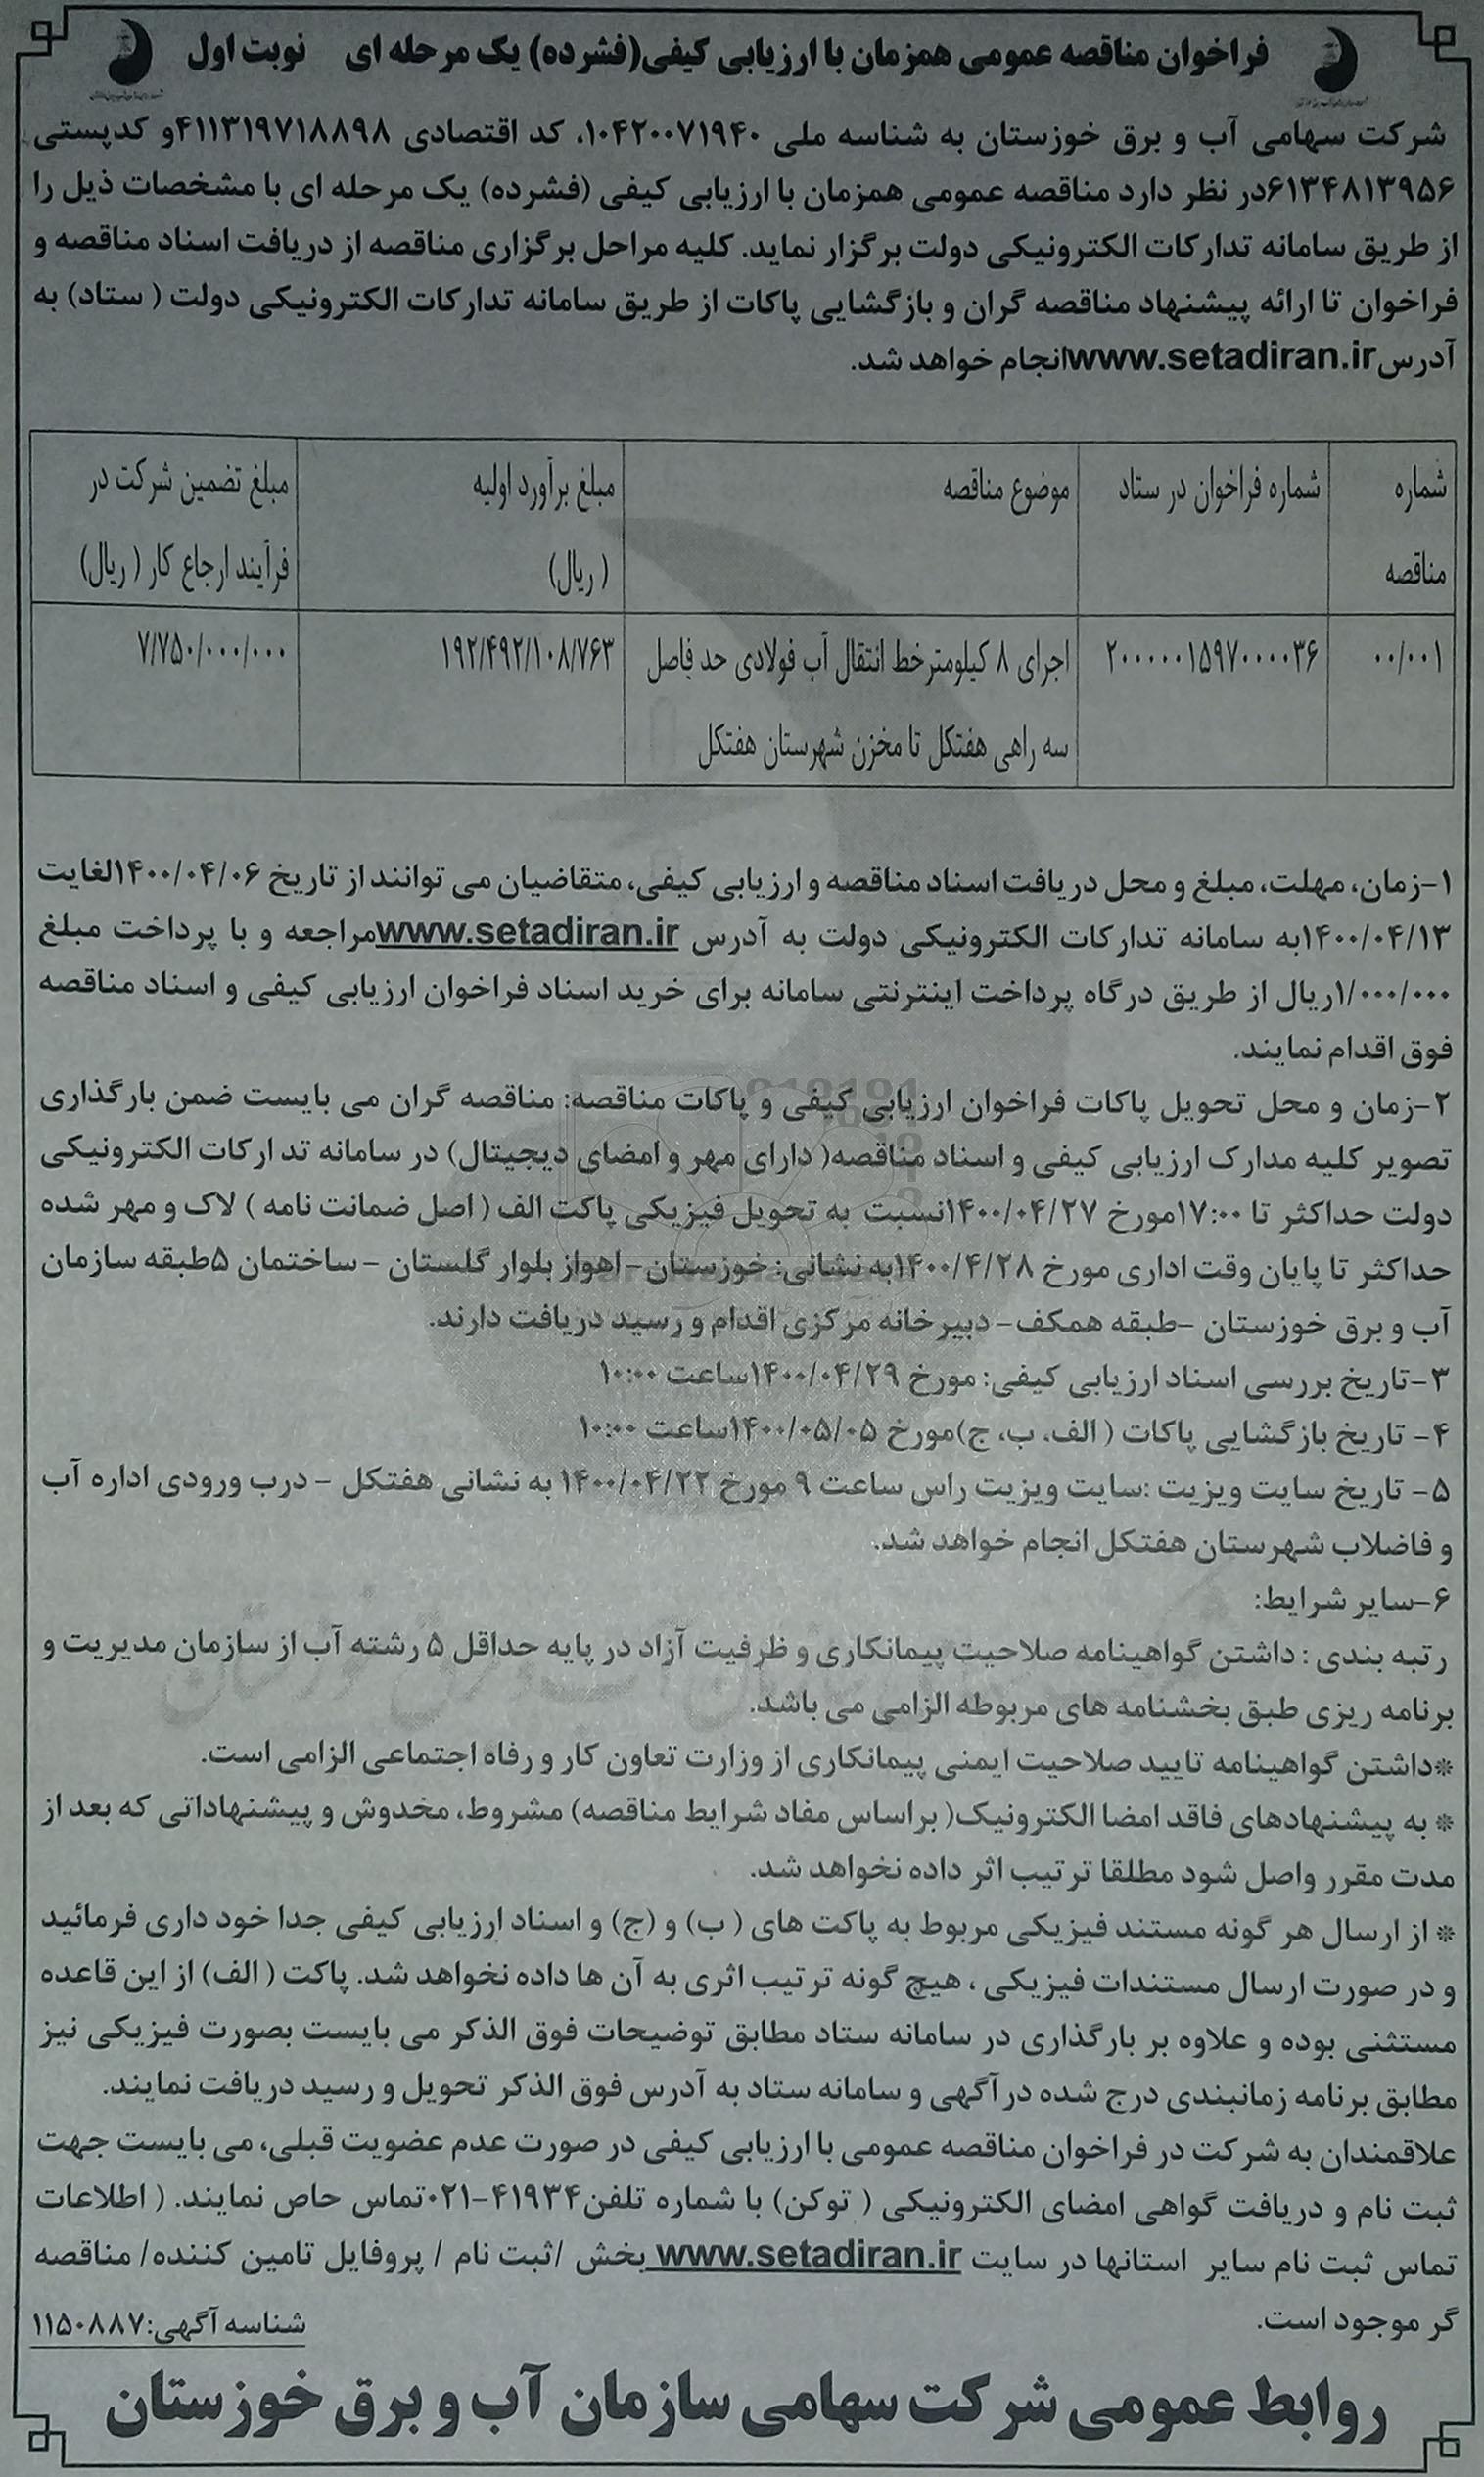 فراخوان مناقصه عمومی همزمان با ارزیابی کیفی(فشرده) یک مرحله ای نوبت اول
شرکت سهامی آب و برق خوزستان به شناسه ملی ۱۰۴۲۰۰۷۱۹۴۰، کد اقتصادی ۴۱۱۳۱۹۷۱۸۸۹۸و کدپستی
۶۱۳۴۸۱۳۹۵۶در نظر دارد مناقصه عمومی همزمان با ارزیابی کیفی (فشرده) یک مرحله ای با مشخصات ذیل را
از طریق سامانه تدارکات الکترونیکی دولت برگزار نماید. کلیه مراحل برگزاری مناقصه از دریافت اسناد مناقصه و
فراخوان تا ارائه پیشنهاد مناقصه گران و بازگشایی پاکات از طریق سامانه تدارکات الکترونیکی دولت ( ستاد) به
آدرسwww.setadiran.irانجام خواهد شد.
شماره مناقصه
شماره فراخوان در ستاد
موضوع مناقصه
مبلغ برآورد اولیه ( ریال)
مبلغ تضمین شرکت در فرآیند ارجاع کار ( ریال)
۰۰/۰۰۱
۲۰۰۰۰۰۱۵۹۷۰۰۰۰۳۶
اجرای ۸ کیلومترخط انتقال آب فولادی حد فاصل
سه راهی هفتکل تا مخزن شهرستان هفتکل
۱۹۲/۴۹۲/۱۰۸/۷۶۳
۷/۷۵۰/۰۰۰/۰۰۰
۱-زمان، مهلت، مبلغ و محل دریافت اسناد مناقصه و ارزیابی کیفی، متقاضیان می توانند از تاریخ ۱۴۰۰/۰۴/۰۶لغایت
۱۴۰۰/۰۴/۱۳به سامانه تدارکات الکترونیکی دولت به آدرس www.setadiran.irمراجعه و با پرداخت مبلغ
۱/۰۰۰/۰۰۰ریال از طریق درگاه پرداخت اینترنتی سامانه برای خرید اسناد فراخوان ارزیابی کیفی و اسناد مناقصه
فوق اقدام نمایند.
۲-زمان و محل تحویل پاکات فراخوان ارزیابی کیفی و پاکات مناقصه: مناقصه گران می بایست ضمن بارگذاری
تصویر کلیه مدارک ارزیابی کیفی و اسناد مناقصه( دارای مهر و امضای دیجیتال) در سامانه تدارکات الکترونیکی
دولت حداکثر تا ۱۷:۰۰مورخ ۱۴۰۰/۰۴/۲۷نسبت به تحویل فیزیکی پاکت الف ( اصل ضمانت نامه ) لاک و مهر شده
حداکثر تا پایان وقت اداری مورخ ۱۴۰۰/۴/۲۸به نشانی: خوزستان- اهواز بلوار گلستان - ساختمان ۵طبقه سازمان
آب و برق خوزستان -طبقه همکف- دبیرخانه مرکزی اقدام و رسید دریافت دارند.
۳-تاریخ بررسی اسناد ارزیابی کیفی: مورخ ۱۴۰۰/۰۴/۲۹ساعت ۱۰:۰۰
۴- تاریخ بازگشایی پاکات ( الف، ب، ج)مورخ ۱۴۰۰/۰۵/۰۵ساعت ۱۰:۰۰
۵- تاریخ سایت ویزیت :سایت ویزیت راس ساعت ۹ مورخ ۱۴۰۰/۰۴/۲۲ به نشانی هفتکل - درب ورودی اداره آب
و فاضلاب شهرستان هفتکل انجام خواهد شد.
۶-سایر شرایط:
رتبه بندی : داشتن گواهینامه صلاحیت پیمانکاری و ظرفیت آزاد در پایه حداقل ۵ رشته آب از سازمان مدیریت و
برنامه ریزی طبق بخشنامه های مربوطه الزامی می باشد.
*داشتن گواهینامه تایید صلاحیت ایمنی پیمانکاری از وزارت تعاون کار و رفاه اجتماعی الزامی است.
* به پیشنهادهای فاقد امضا الکترونیک( براساس مفاد شرایط مناقصه) مشروط، مخدوش و پیشنهاداتی که بعد از
مدت مقرر واصل شود مطلقا ترتیب اثر داده نخواهد شد.
* از ارسال هر گونه مستند فیزیکی مربوط به پاکت های ( ب) و (ج) و اسناد ارزیابی کیفی جدا خود داری فرمائید
و در صورت ارسال مستندات فیزیکی ، هیچ گونه ترتیب اثری به آن ها داده نخواهد شد. پاکت ( الف) از این قاعده
مستثنی بوده و علاوه بر بارگذاری در سامانه ستاد مطابق توضیحات فوق الذکر می بایست بصورت فیزیکی نیز
مطابق برنامه زمانبندی درج شده در آگهی و سامانه ستاد به آدرس فوق الذکر تحویل و رسید دریافت نمایند.
علاقمندان به شرکت در فراخوان مناقصه عمومی با ارزیابی کیفی در صورت عدم عضویت قبلی، می بایست جهت
ثبت نام و دریافت گواهی امضای الکترونیکی ( توکن) با شماره تلفن۴۱۹۳۴-۰۲۱تماس حاص نمایند. ( اطلاعات
تماس ثبت نام سایر استانها در سایت www.setadiran.ir بخش /ثبت نام / پروفایل تامین کننده/ مناقصه
گر موجود است.
شناسه آگهی:۱۱۵۰۸۸۷
روابط عمومی شرکت سهامی سازمان آب و برق خوزستان